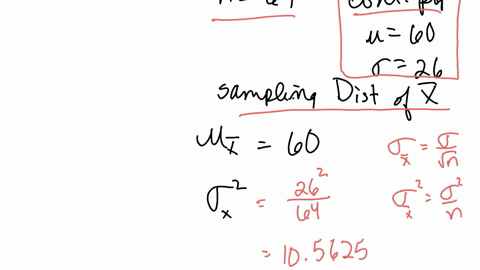 μ = 60
σ = 26
Sampling Dist of X̄
μ_X̄ = 60
σ_X̄ = σ/√n
σ_x² = 26²/64
σ_x̄² = σ²/n
= 10.5625